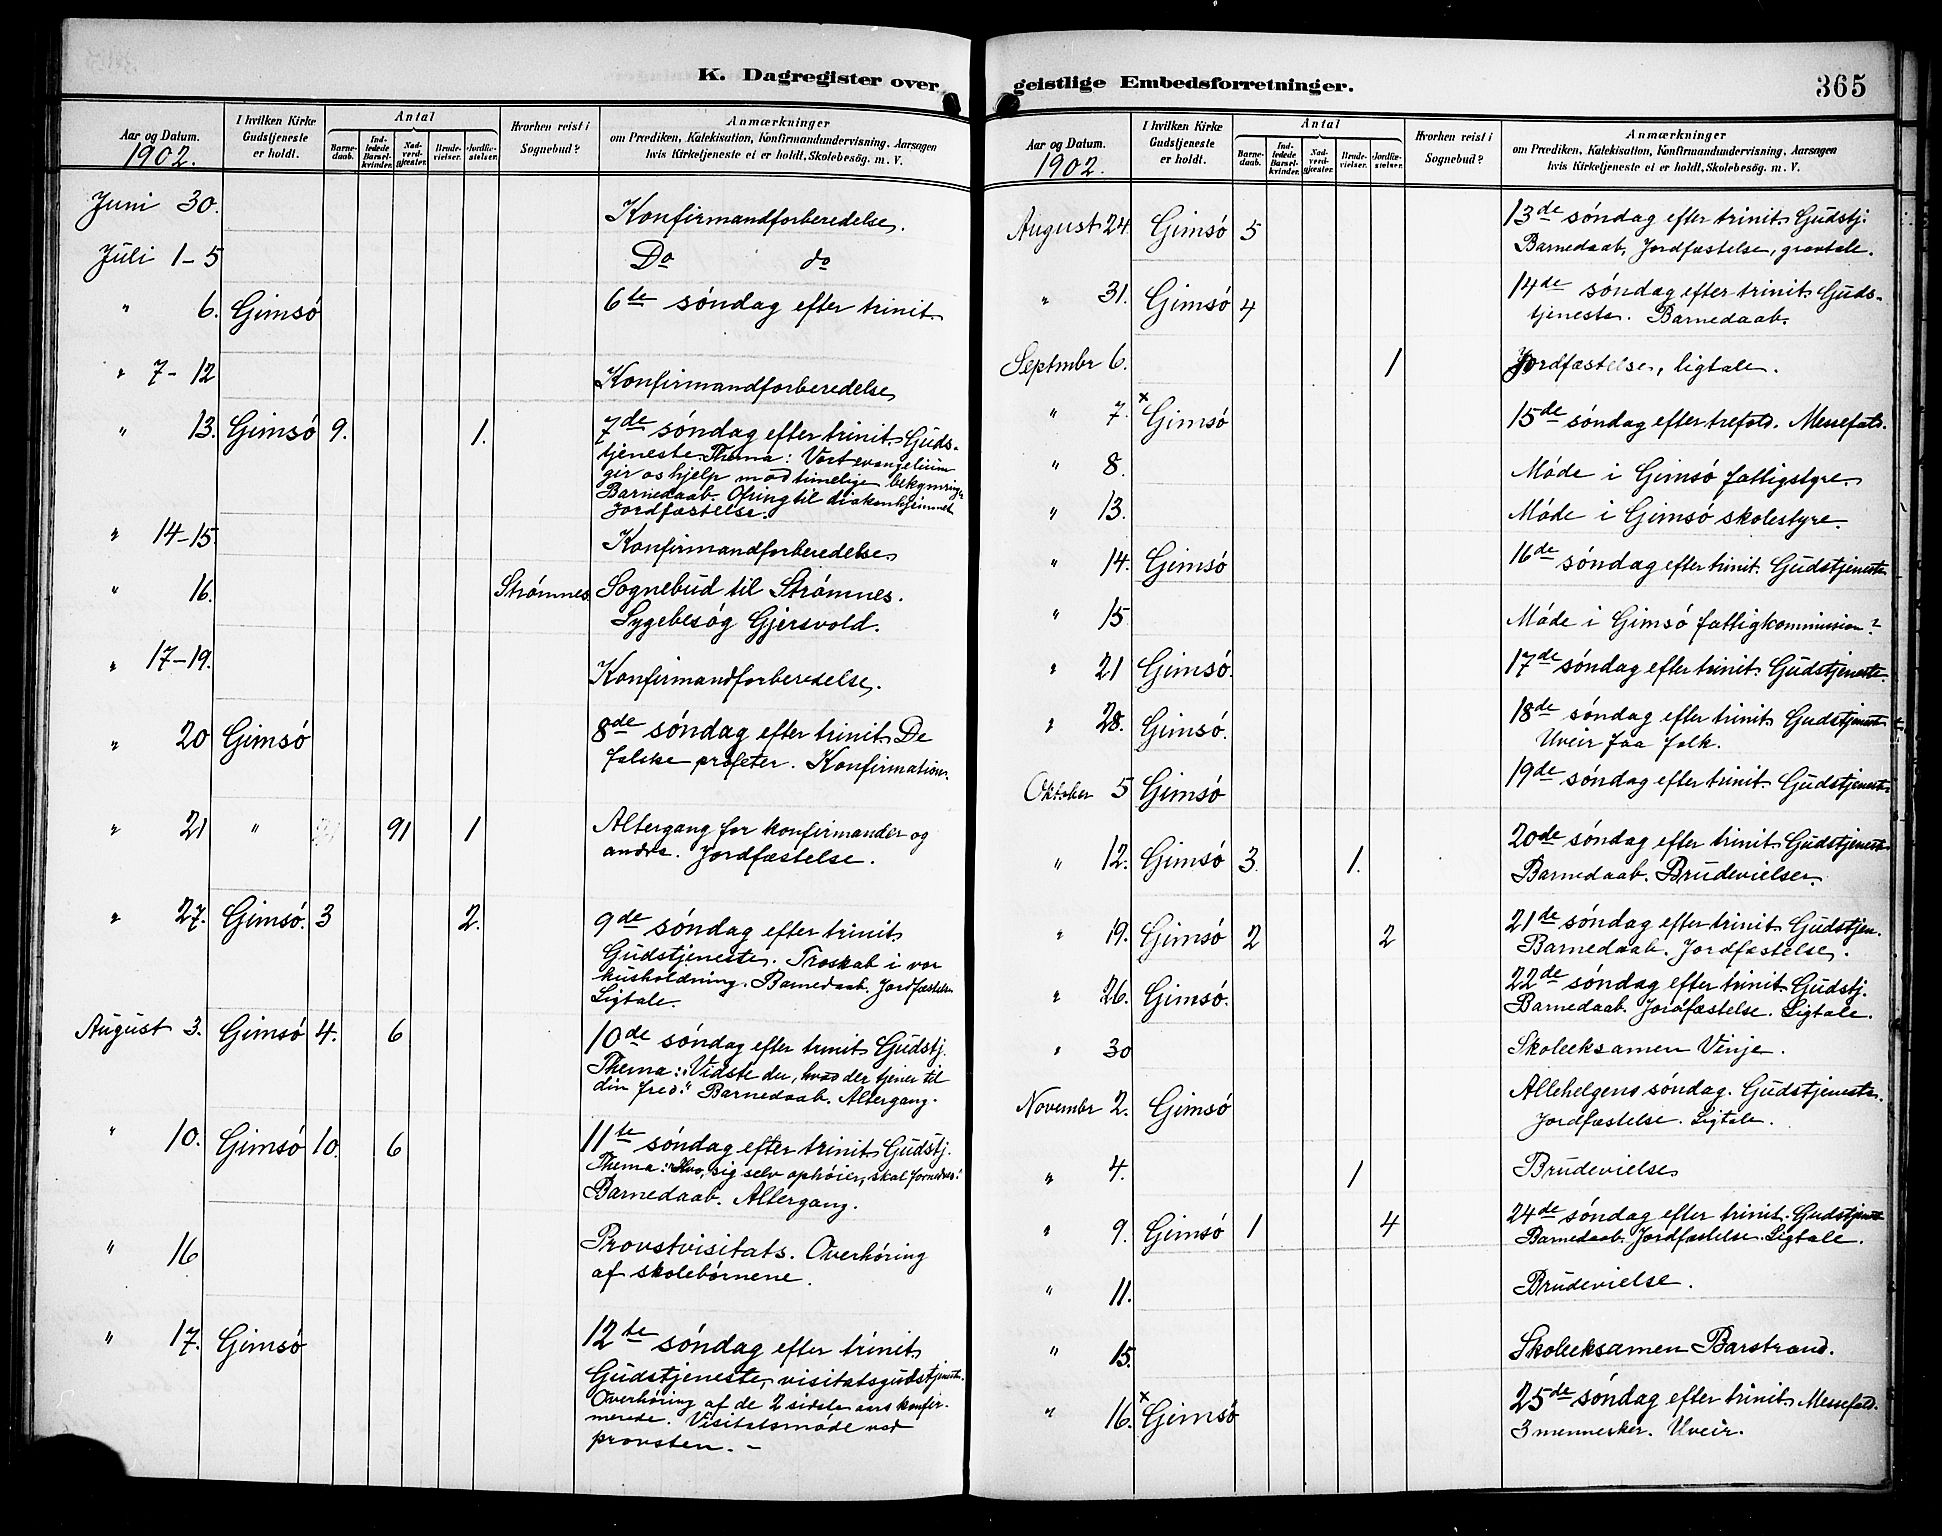 K. Dagregister over
Aar og Datum.
1902.
I hvilken Kirke
Gudstjeneste
er holdt.
Antal
Barne-
daab.
Ind-
ledede
Barsel-
kvinder.
Nad-
verd-
gjæster.
Brude-
vielser.
Jordfæ-
stelser.
Hvorhen reist i
Sognebud?
Anmærkninger
om Prædiken, Katekisation, Konfirmandundervisning, Aarsagen
hvis Kirketjeneste ei er holdt, Skolebesög. m. V.
Juni 30. Konfirmandforberedelse.
Juli 1-5 Do do
" 6. Gimsó 6te sóndag efter trinit.
" 7-12 Konfirmandforberedelse
" 13. Gimsó 9. 1. 7de sóndag efter trinit. Guds-
tjeneste. Thema: Vort evangelium
gir os hjelp mod timelige bekymringer
Barnedaab. Ofring til diakonhjemmet
Jordfæstelse.
" 14-15. Konfirmandforberedelse
" 16. Strømnes Sognebud til Strømnes.
Sygebesóg Gjersvold.
" 17-19. Konfirmandforberedelse.
" 20 Gimsó 8de sóndag efter trinit. De
falske profeter. Konfirmation.
" 21 " 91 1 Altergang for konfirmander og
andre. Jordfæstelse.
" 27. Gimsó. 3 2. 9de sóndag efter trinit.
Gudstjeneste. Troskab i vor
husholdning. Barnedaab. Jordfæstelse
Ligtale.
August 3. Gimsó 4. 6 10de sóndag efter trinit. Gudstj.
Thema: "Vidste du, hvad der tjener til
din fred." Barnedaab. Altergang.
" 10. Gimsó 10. 6 11te sóndag efter trinit. Gudstj.
Thema: "Hvo, sig selv ophóier, skal fornedres."
Barnedaab. Altergang.
" 16 Provstvisitats. Overhóring
af skolebórnene.
" 17. Gimsó 12te sóndag efter trinit.
Gudstjeneste, visitatsgudstjeneste.
Overhóring af de 2 sidste aars konfir-
merede. Visitatsmóde ved
provsten. -
geistlige Embedsforretninger.
365
Aar og Datum.
1902.
I hvilken Kirke
Gudstjeneste
er holdt.
Antal
Barne-
daab.
Ind-
ledede
Barsel-
kvinder.
Nad-
verd-
gjæster.
Brude-
vielser.
Jordfæ-
stelser.
Hvorhen reist i
Sognebud?
Anmærkninger
om Prædiken, Katekisation, Konfirmandundervisning, Aarsagen
hvis Kirketjeneste ei er holdt, Skolebesög. m. V.
August 24. Gimsó 5 13de sóndag efter trinit. Gudstj.
Barnedaab, Jordfæstelse, gravtale.
" 31. Gimsó 4 14de sóndag efter trinit. Guds-
tjeneste. Barnedaab.
Septmbr 6. 1 Jordfæstelse, ligtale.
" 7. x Gimsó 15de sóndag efter trefold. Messefald.
" 8. Móde i Gimsó fattigstyre.
" 13. Móde i Gimsó skolestyre.
" 14. Gimsó 16de sóndag efter trinit. Gudstjeneste
" 15 Móde i Gimsó fattigkommission?
" 21 Gimsó. 17de sóndag efter trinit. Gudstjeneste.
" 28. Gimsó. 18de sóndag efter trinit. Gudstjenest
Uveir faa folk.
Oktober 5 Gimsó 19de sóndag efter trinit. Gudstjeneste
" 12. Gimsó 3. 1. 20de sóndag efter trinit. Gudstjeneste
Barnedaab. Brudevielser.
" 19. Gimsó 2 2 21de sóndag efter trinit. Gudstjen.
Barnedaab. Jordfæstelse.
" 26. Gimsó. 22de sóndag efter trinit. Gudstj.
Barnedaab. Jordfæstelse. Ligtale.
" 30 Skoleeksamen Vinje.
Novembr 2. Gimsó Allehelgens sóndag. Gudstjeneste.
Jordfæstelse. Ligtale.
" 4. 1 Brudevielse
" 9. Gimsó 1 4 24de sóndag efter trinit. Gudstjenest
Barnedaab. Jordfæstelse. Ligtale.
" 11. Brudevielse.
" 15. Skoleeksamen Barstrand.
" 16. x Gimsó 25de sóndag efter trinit. Messefald.
3 mennesker. Uveir.